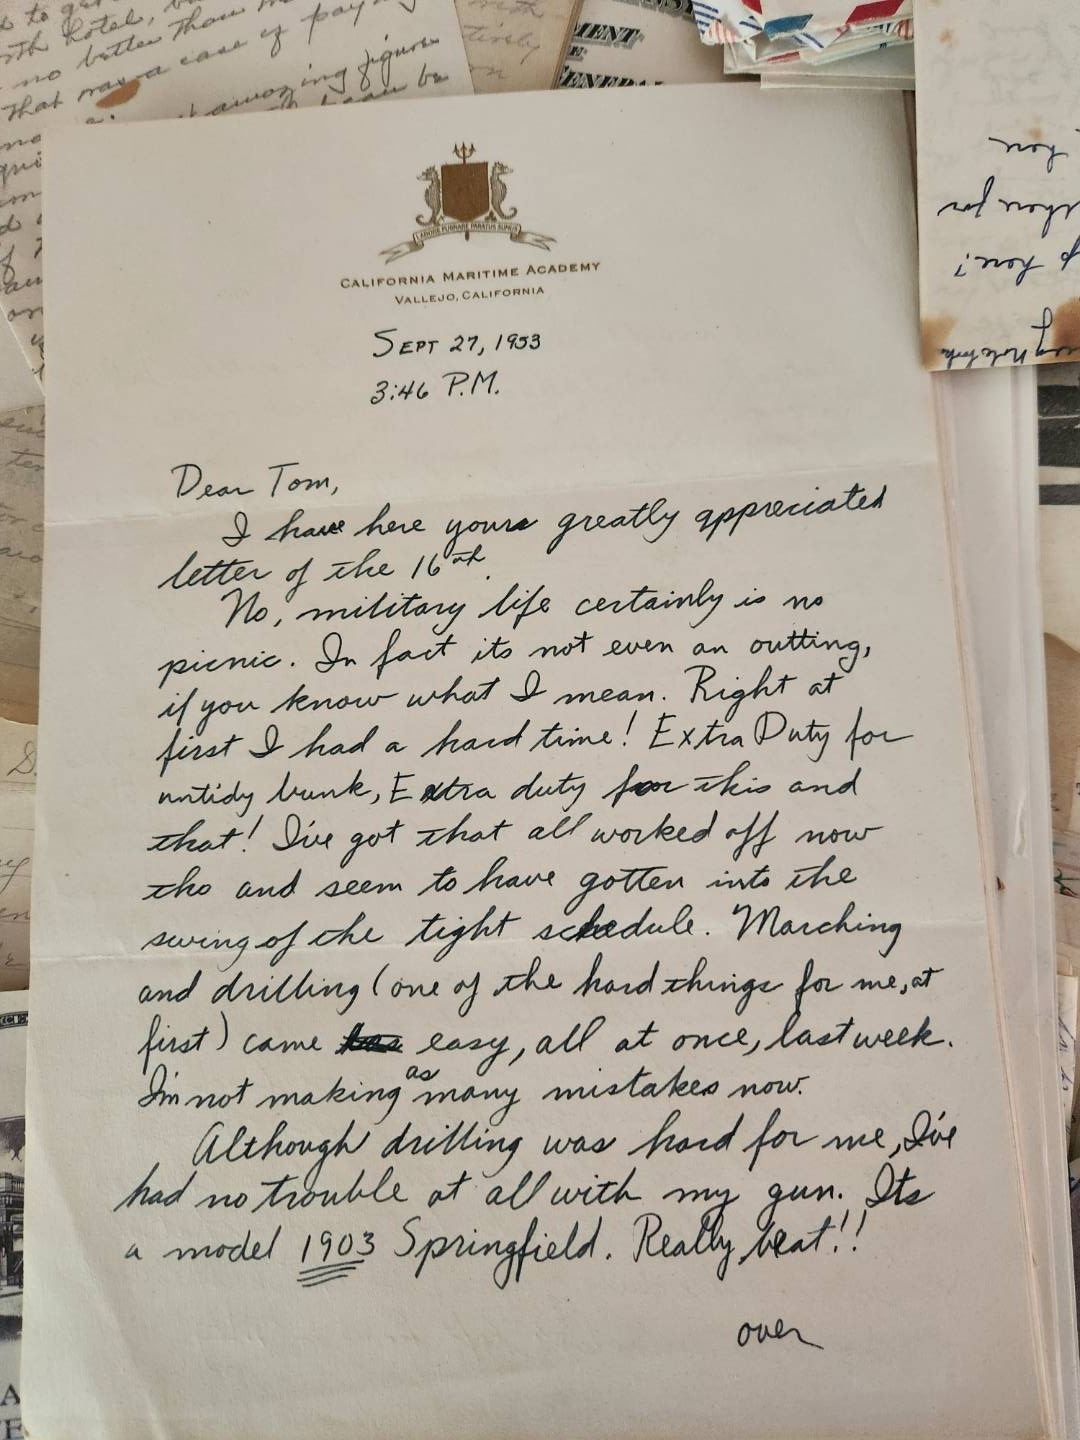 to
hotel,
no better than
that was a case of pay
amazing figure
can be
MENT
GENERAL
LABORE PUGNARE PARATUS SUMUS
CALIFORNIA MARITIME ACADEMY
VALLEJO, CALIFORNIA
SEPT 27, 1953
3:46 P.M.
Dear Tom,
I have here your greatly appreciated
letter of the 16th.
No, military life certainly is no
picnic. In fact its not even an outting,
if you know what I mean. Right at
first I had a hard time! Extra Duty for
untidy bunk, Extra duty for this and
that! I've got that all worked off now
tho and seem to have gotten into the
swing of the tight schedule. Marching
and drilling (one of the hard things for me, at
first) came easy, all at once, last week.
I'm not making as many mistakes now.
Although drilling was hard for me, I've
had no trouble at all with my gun. Its
a model 1903 Springfield. Really beat!!
over
here
there for
here!